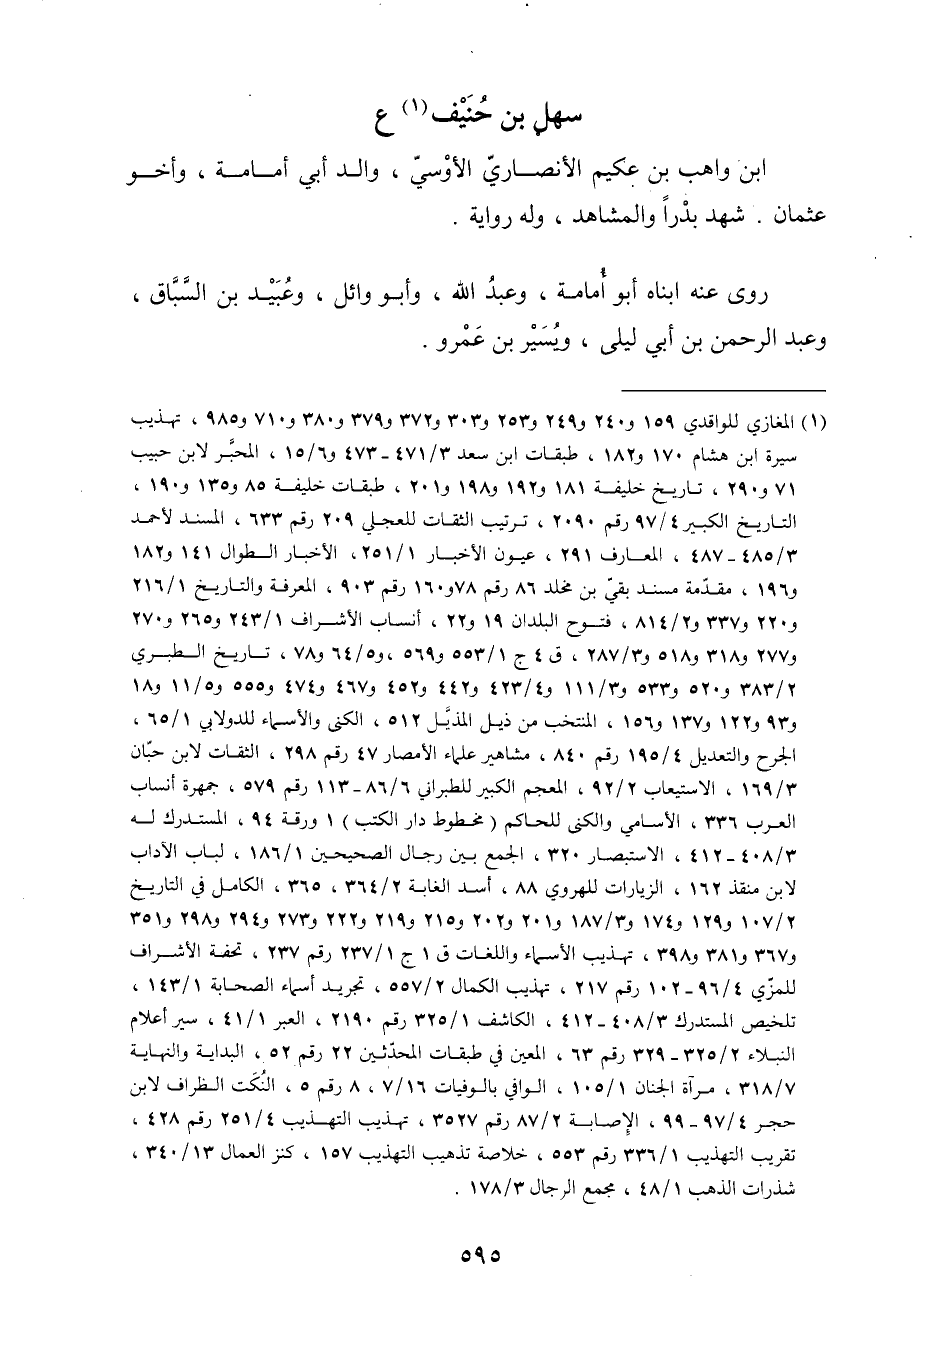 سهل بن حُنَيْف(١) ع
ابن واهب بن عكيم الأنصاريّ الأوْسيّ ، والد أبي أمامة ، وأخو
عثمان . شهد بدْراً والمشاهد ، وله رواية .
روى عنه ابناه أبو أُمامة ، وعبدُ الله ، وأبو وائل ، وعُبَيْد بن السَّبَّاق ،
وعبد الرحمن بن أبي ليلى ، ويُسَيْر بن عَمْرو .
(١) المغازي للواقدي ١٥٩ و٢٤٠ و٢٤٩ و٢٥٣ و٣٠٣ و٣٧٢ و٣٧٩ و٣٨٠ و٧١٠ و٩٨٥ ، تهذيب
سيرة ابن هشام ١٧٠ و١٨٢ ، طبقات ابن سعد ٤٧١/٣ ـ ٤٧٣ و١٥/٦ ، المحبَّر لابن حبيب
٧١ و٢٩٠ ، تاريخ خليفة ١٨١ و١٩٢ و١٩٨ و٢٠١ ، طبقات خليفة ٨٥ و١٣٥ و١٩٠ ،
التاريخ الكبير ٩٧/٤ رقم ٢٠٩٠ ، ترتيب الثقات للعجلي ٢٠٩ رقم ٦٣٣ ، المسند لأحمد
٤٨٥/٣ ـ ٤٨٧ ، المعارف ٢٩١ ، عيون الأخبار ٢٥١/١ ، الأخبار الطوال ١٤١ و١٨٢
و١٩٦ ، مقدّمة مسند بقيّ بن مخلد ٨٦ رقم ٧٨ و١٦٠ رقم ٩٠٣ ، المعرفة والتاريخ ٢١٦/١
و٢٢٠ و٣٣٧ و٨١٤/٢ ، فتوح البلدان ١٩ و٢٢ ، أنساب الأشراف ٢٤٣/١ و٢٦٥ و٢٧٠
و٢٧٧ و٣١٨ و٥١٨ و٢٨٧/٣ ، ق ٤ ج ٥٥٣/١ و٥٦٩ ، و٦٤/٥ و٧٨ ، تاريخ الطبري
٣٨٣/٢ و٥٢٠ و٥٣٣ و١١١/٣ و٤٢٣/٤ و٤٤٢ و٤٥٢ و٤٦٧ و٤٧٤ و٥٥٥ و١١/٥ و١٨
و٩٣ و١٢٢ و١٣٧ و١٥٦ ، المنتخب من ذيل المذيَّل ٥١٢ ، الكنى والأسماء للدولابي ٦٥/١ ،
الجرح والتعديل ١٩٥/٤ رقم ٨٤٠ ، مشاهير علماء الأمصار ٤٧ رقم ٢٩٨ ، الثقات لابن حبّان
١٦٩/٣ ، الاستيعاب ٩٢/٢ ، المعجم الكبير للطبراني ٨٦/٦ ـ ١١٣ رقم ٥٧٩ ، جمهرة أنساب
العرب ٣٣٦ ، الأسامي والكنى للحاكم ( مخطوط دار الكتب ) ١ ورقة ٩٤ ، المستدرك له
٤٠٨/٣ ـ ٤١٢ ، الاستبصار ٣٢٠ ، الجمع بين رجال الصحيحين ١٨٦/١ ، لباب الآداب
لابن منقذ ١٦٢ ، الزيارات للهروي ٨٨ ، أسد الغابة ٣٦٤/٢ ، ٣٦٥ ، الكامل في التاريخ
١٠٧/٢ و١٢٩ و١٧٤ و١٨٧/٣ و٢٠١ و٢٠٢ و٢١٥ و٢١٩ و٢٢٢ و٢٧٣ و٢٩٤ و٢٩٨ و٣٥١
و٣٦٧ و٣٨١ و٣٩٨ ، تهذيب الأسماء واللغات ق ١ ج ٢٣٧/١ رقم ٢٣٧ ، تحفة الأشراف
للمزّي ٩٦/٤ ـ ١٠٢ رقم ٢١٧ ، تهذيب الكمال ٥٥٧/٢ ، تجريد أسماء الصحابة ١٤٣/١ ،
تلخيص المستدرك ٤٠٨/٣ ـ ٤١٢ ، الكاشف ٣٢٥/١ رقم ٢١٩٠ ، العبر ٤١/١ ، سير أعلام
النبلاء ٣٢٥/٢ ـ ٣٢٩ رقم ٦٣ ، المعين في طبقات المحدّثين ٢٢ رقم ٥٢ ، البداية والنهاية
٣١٨/٧ ، مرآة الجنان ١٠٥/١ ، الوافي بالوفيات ٧/١٦ ، ٨ رقم ٥ ، النُكَت الظراف لابن
حجر ٩٧/٤ ـ ٩٩ ، الإصابة ٨٧/٢ رقم ٣٥٢٧ ، تهذيب التهذيب ٢٥١/٤ رقم ٤٢٨ ،
تقريب التهذيب ٣٣٦/١ رقم ٥٥٣ ، خلاصة تذهيب التهذيب ١٥٧ ، كنز العمال ٣٤٠/١٣ ،
شذرات الذهب ٤٨/١ ، مجمع الرجال ١٧٨/٣ .
٥٩٥